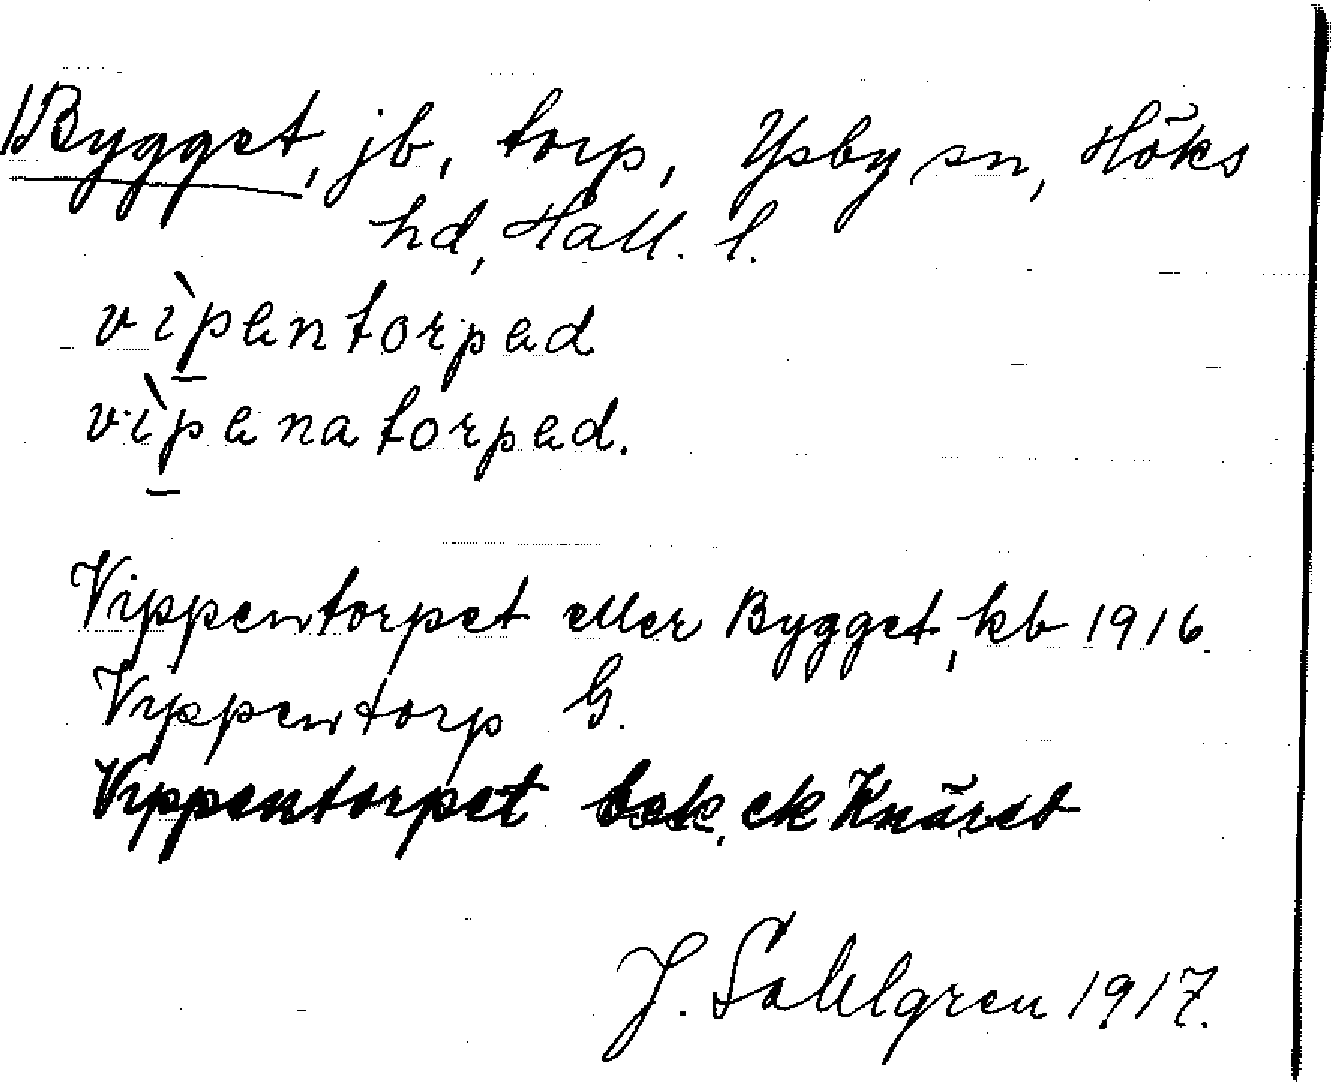 1) Bygget, jb, torp, Ysby sn, Höks
hd, Hall. l.
vìpentorped
vìpenatorped.
Vippentorpet eller Bygget, kb 1916.
Vippentorp G.
Vippentorpet ek Knäred
J. Sahlgren 1917.